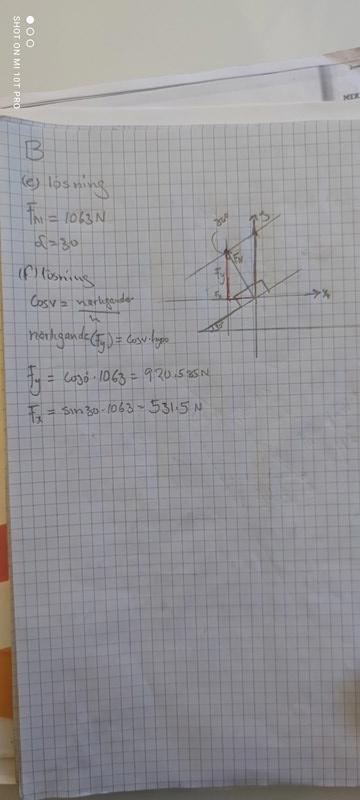 SHOT ON MI 10T PRO
B
(e) lösning
FN = 1063 N
α = 30
(f) lösning
cos v = närligande
h
närligande (Fy) = cosv · hypo
Fy = cos · 1063 = 920.585 N
Fx = sin 30 · 1063 = 531.5 N
30°
y
FN
Fy
Fx
x